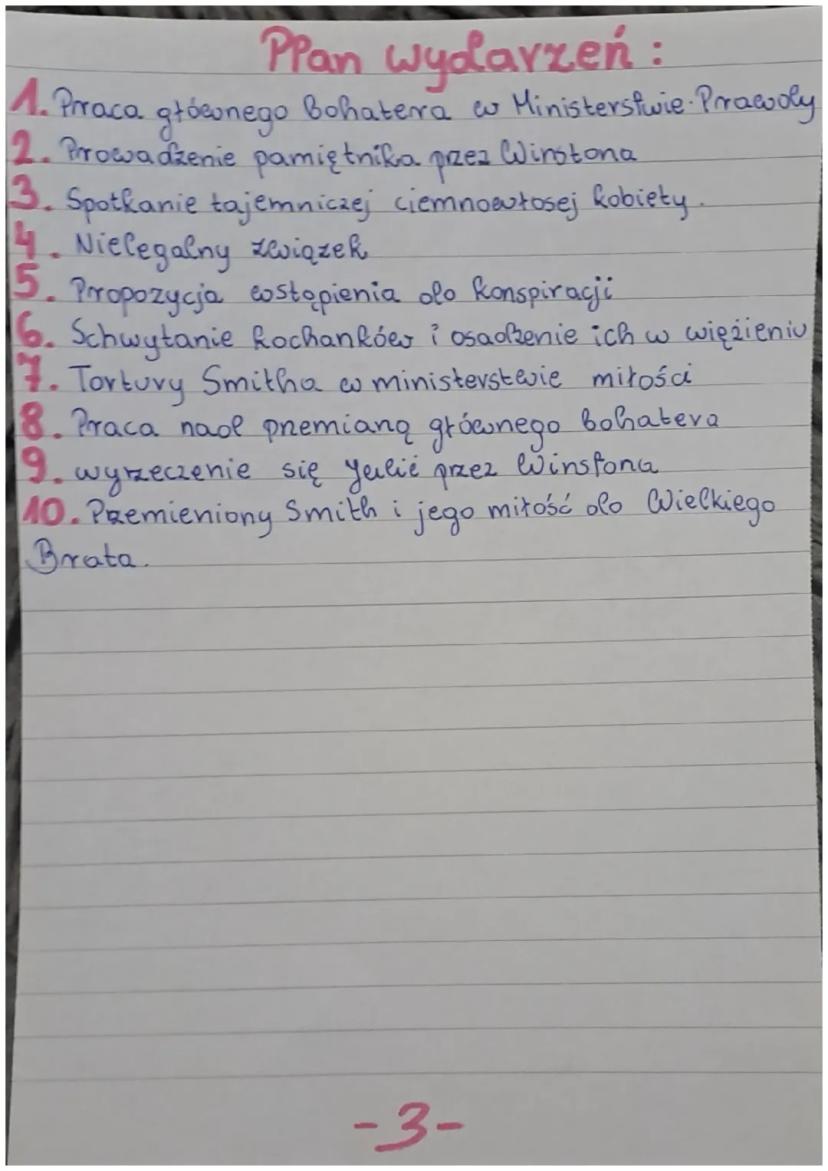 Plan wydarzeń:
1. Praca głównego bohatera w Ministerstwie Prawdy
2. Prowadzenie pamiętnika przez Winstona
3. Spotkanie tajemniczej ciemnowłosej kobiety.
4. Nielegalny związek
5. Propozycja wstąpienia do konspiracji
6. Schwytanie kochanków i osadzenie ich w więzieniu
7. Tortury Smitha w ministerstwie miłości
8. Praca nad przemianą głównego bohatera
9. wyrzeczenie się Julii przez Winstona
10. Przemieniony Smith i jego miłość do Wielkiego
Brata.
-3-